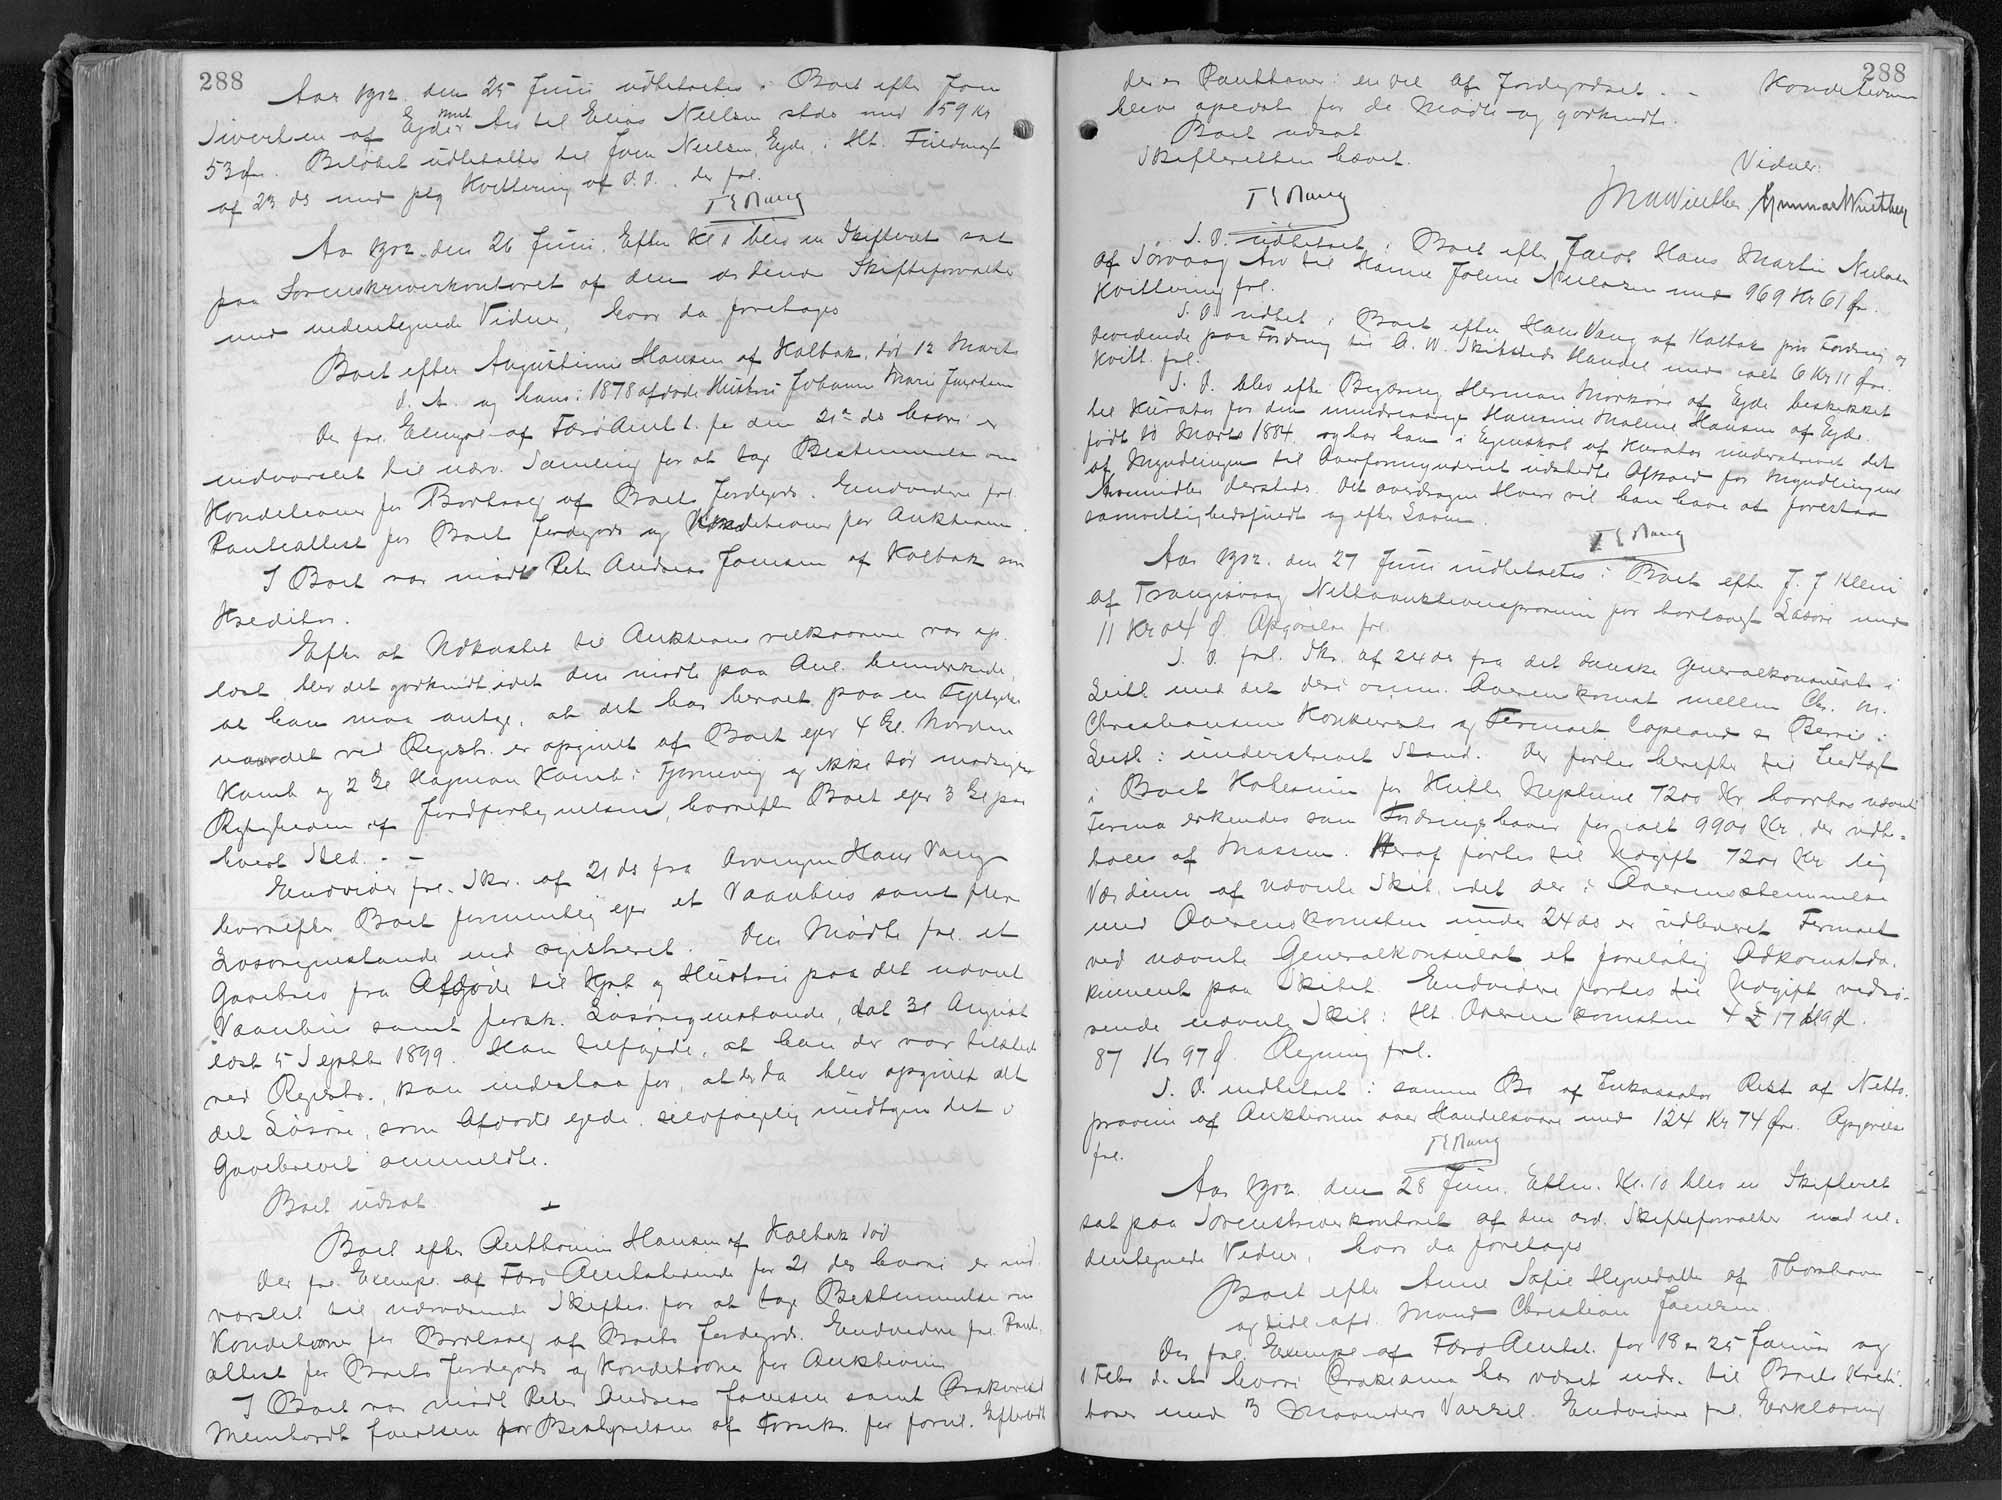 288
Aar 1902 den 25 Juni udbetaltes i Boet efter Joen
Sivertsen af Ejde Arv til Elias Nielsen stor med 159 Kr
53 Ør. Beløbet udbetaltes til Joen Nielsen, Ejde i Hht. Fuldmagt
af 23 ds mod Kvittering af D.D. der frl.
Aar 1902 den 26 Juni Efter Kl 1 blev en Skifteret sat
paa Sorenskriverkontoret af den ordinære Skifteforvalter
med undertegnede Vidner, hvor da foretoges
Boet efter Augustinus Hansen af Kalbak, død 12 Marts
d. A. og hans i 1878 afdøde Hustru Johanne Marie Jacobsen
Der frl. Exempl. af Færø Amtst. for den 21de ds hvori er
indvarslet til nærv. Samling for at tage Bestemmelse om
Konditioner for Bortsalg af Boets Jordegods. Endvidere frl.
Panteattest for Boets Jordegods og Konditioner for Auktionen.
I Boet var mødt Peter Andreas Joensen af Kalbak som
Kreditor.
Efter at Udkastet til Auktionsvilkaarene var op-
læst blev det godkendt idet den mødte paa Anl. bemærkede,
at han maa antage, at det har beroet paa en Fejltagelse
naar det ved Registr. er opgivet at Boet ejer 4 Gl. Norden
Kamb og 2 Gl Hagman Kamb i Tjørnevig og ikke tør modsige
Rigtigheden af Jordfortegnelsen, hvorefter Boet ejer 3 Gl paa
hvert Sted. -
Endvidere frl. Skr. af 21 ds fra Arvingen Hans Vang
hvorefter Boet formentlig ejer et Vaanhus samt flere
Løsøregenstande end registreret. Den Mødte frl. et
Gavebrev fra Afdøde til Kpt og Hustru paa det nævnte
Vaanhus samt forsk. Løsøregenstande, dat 31 August
læst 5 Septbr 1899. Han tilføjede, at han der var tilstede
ved Registr., kan indestaa for, at der da blev opgivet alt
det Løsøre, som Afdøde ejede, selvfølgelig undtagen det i
Gavebrevet ommeldte.
Boet udsat.
Boet efter Anthonius Hansen af Kalbak død
Der frl. Exempl. af Færø Amtstidende for 21 ds hvori er ind-
varslet til nærværende Skiftes. for at tage Bestemmelse om
Konditioner for Bortsalg af Boets Jordegods. Endvidere frl. Pant-
attest for Boets Jordegods og Konditioner for Auktionen
I Boet var mødt Peter Andreas Joensen samt
Meinhardt Joensen for Bestyrelsen af Forsik. for forul. Efterladte
288
der er Panthaver i en Del af Jordegodset. - Konditionerne
blev oplæst for de Mødte og godkendt.
Boet udsat
Skifteretten hævet.
Vidner:
J.D. udbetalt i Boet efter Jacob Hans Martin Nielsen
af Sørvaag Arv til Hanne Joline Nielsen med 969 Kr 61 Ør.
Kvittering frl.
S. D. udbet. i Boet efter Hans Vang af Kalbak priv Fordring og
Dividende paa Fordring til C. W. Skibsteds Handel med ialt 6 Kr 11 Øre.
Kvitt. frl.
S. D. blev efter Begæring Herman Mørkøre af Ejde beskikket
til Kurator for den mindreaarige Hansine Maline Hansen af Ejde
født 10 Marts 1884 og har han i Egenskab af Kurator underskrevet det
af Myndlingen til Overformynderiet udstedte Afkald for Myndlingens
Arvemidler dersteds. Det overdragne Hverv vil han have at forestaa
samvittighedsfuldt og efter Loven.
Aar 1902 den 27 Juni indbetaltes i Boet efter J. J Klein
af Trangisvaag Nettoauktionsprovenu for bortsolgt Løsøre med
11 Kr 04 Ø. Opgørelse frl.
S. D. frl. Skr. af 24 ds fra det danske Generalkonsulat i
Leith med det deri omm. Overenskomst mellem Chr. M.
Christiansens Konkursbo og Firmaet Copeland & Berrie i
Leith i underskrevet Stand. Der førtes herefter til Indtægt
i Boet Købesum for Kutter Neptune 7200 Kr hvorhos nævnte
Firma erkendes som Fordringshaver for ialt 9900 Kr, der udbe-
tales af Massen. Heraf førtes til Udgift 7200 Kr lig
Værdien af nævnte Skib, idet der i Overensstemmelse
med Overenskomsten under 24 ds er udleveret Firmaet
ved nævnte Generalkonsulat et foreløbig Adkomstdo-
kument paa Skibet. Endvidere førtes til Udgift vedrø-
rende nævnte Skib i Hht. Overenskomsten 4 £ 17 s 9 d.
87 Kr 97 Ø. Regning frl.
S. D. indbetalt i samme Bo af Inkassator Rest af Netto-
provenu af Auktionen over Handelsvarer med 124 Kr 74 Øre. Opgørelse
frl.
Aar 1902 den 28 Juni. Efter. Kl. 10 blev en Skifteret
sat paa Sorenskriverkontoret af den ord. Skifteforvalter med un-
dertegnede Vidner, hvor da foretoges
Boet efter Anne Sofie Hejnedatter af Thorshavn
og tidl. afd. Mand Christian Joensen.
Der frl. Exempl. af Færø Amtst. for 18 & 25 Januar og
1 Febr d. A. hvori Proklama har været indr. til Boets Kredi-
torer med 3 Maaneders Varsel. Endvidere frl. Erklæring